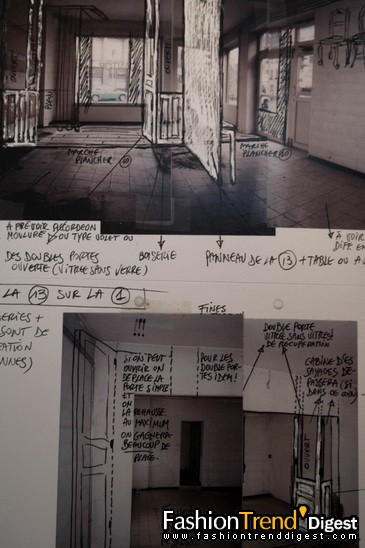 OUVERT
OUVERT
MARCHE
PLANCHER
MARCHE
PLANCHER
A PREVOIR ACCORDEON
MOULURE OU TYPE VOLET OU
DES DOUBLES PORTES
OUVERTE (VITRE SANS VERRE)
BOISERIE
PANNEAU DE LA 13 + TABLE OU
À VOIR
LA 13 SUR LA 1
FINES
SONT DE
!!!
SI ON PEUT
OUVRIR ON
DEPLACE LA
PORTE SIMPLE
ET
ON LA REHAUSSE
AU
MAXIMUM
ON GAGNERA
BEAUCOUP DE
PLACE.
POUR LES
DOUBLE POR-
TES IDEM!
DOUBLE PORTE
VITRÉ SANS VITRES
DE RECUPERATION
CABINE D'ES
SAYAGES DE-
PASSERA (SI
DANS CE COIN)
OUVERT
FashionTrend'Digest
www.fashiontrenddigest.com